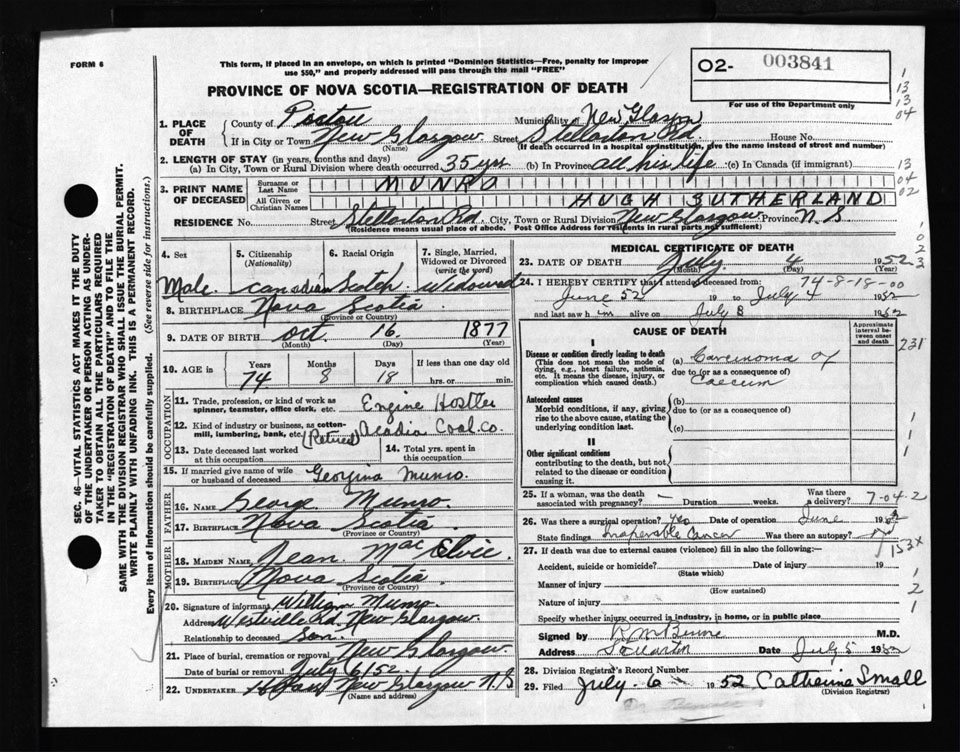 FORM 6
This form, if placed in an envelope, on which is printed "Dominion Statistics—Free, penalty for improper
use $50," and properly addressed will pass through the mail "FREE"
O2- 003841
For use of the Department only
PROVINCE OF NOVA SCOTIA—REGISTRATION OF DEATH
1. PLACE OF DEATH
County of Pictou Municipality of New Glasgow
If in City or Town New Glasgow Street Stellarton Rd. House No.
(Name) (If death occurred in a hospital or institution, give the name instead of street and number)
2. LENGTH OF STAY (in years, months and days)
(a) In City, Town or Rural Division where death occurred 35 yrs (b) In Province all his life (c) In Canada (if immigrant)
3. PRINT NAME OF DECEASED
Surname or Last Name MUNRO
All Given or Christian Names HUGH SUTHERLAND
RESIDENCE No. Street Stellarton Rd. City, Town or Rural Division New Glasgow Province N.S.
(Residence means usual place of abode. Post Office Address for residents in rural parts not sufficient)
4. Sex
Male
5. Citizenship
(Nationality)
Canadian
6. Racial Origin
Scotch
7. Single, Married, Widowed or Divorced
(write the word)
Widowed
8. BIRTHPLACE Nova Scotia
(Province or Country)
9. DATE OF BIRTH Oct. 16 1877
(Month) (Day) (Year)
10. AGE in Years Months Days If less than one day old
74 8 18 hrs. or min.
OCCUPATION
11. Trade, profession, or kind of work as spinner, teamster, office clerk, etc. Engine Hostler
12. Kind of industry or business, as cotten-mill, lumbering, bank, etc. (Retired) Acadia Coal. Co.
13. Date deceased last worked at this occupation
14. Total yrs. spent in this occupation
15. If married give name of wife or husband of deceased Georgina Munro.
FATHER
16. NAME George Munro.
17. BIRTHPLACE Nova Scotia
(Province or Country)
MOTHER
18. MAIDEN NAME Jean. MacElvie.
19. BIRTHPLACE Nova Scotia
(Province or Country)
20. Signature of informant William Munro.
Address Westville Rd. New Glasgow.
Relationship to deceased Son.
21. Place of burial, cremation or removal New Glasgow
Date of burial or removal July 6/52
22. UNDERTAKER New Glasgow N.S
(Name and address)
MEDICAL CERTIFICATE OF DEATH
23. DATE OF DEATH July 4 1952
(Month) (Day) (Year)
74-8-18-00
24. I HEREBY CERTIFY that I attended deceased from:
June 52 19 to July 4 1952
and last saw him alive on July 1952
CAUSE OF DEATH
Approximate interval between onset and death
I
Disease or condition directly leading to death
(This does not mean the mode of dying, e.g., heart failure, asthenia, etc. It means the disease, injury, or complication which caused death.)
(a) Carcinoma of
due to (or as a consequence of)
Caecum
Antecedent causes
Morbid conditions, if any, giving rise to the above cause, stating the underlying condition last.
(b)
due to (or as a consequence of)
(c)
II
Other significant conditions
contributing to the death, but not related to the disease or condition causing it.
25. If a woman, was the death associated with pregnancy? — Duration weeks. Was there a delivery?
7-04-2
26. Was there a surgical operation? Yes Date of operation June 1952
State findings Inoperable Cancer Was there an autopsy? no
153X
27. If death was due to external causes (violence) fill in also the following:—
Accident, suicide or homicide? Date of injury 19
(State which)
Manner of injury
(How sustained)
Nature of injury
Specify whether injury occurred in industry, in home, or in public place
Signed by M.D.
Address Stellarton Date July 5 1952
28. Division Registrar's Record Number
29. Filed July. 6 1952 Catherine Small
(Division Registrar)
SEC. 46—VITAL STATISTICS ACT MAKES IT THE DUTY
OF THE UNDERTAKER OR PERSON ACTING AS UNDER-
TAKER TO OBTAIN ALL THE PARTICULARS REQUIRED
IN THE "REGISTRATION OF DEATH" AND TO FILE THE
SAME WITH THE DIVISION REGISTRAR WHO SHALL ISSUE THE BURIAL PERMIT.
WRITE PLAINLY WITH UNFADING INK. THIS IS A PERMANENT RECORD.
Every item of information should be carefully supplied. (See reverse side for instructions.)
1
13
13
04
13
04
02
231